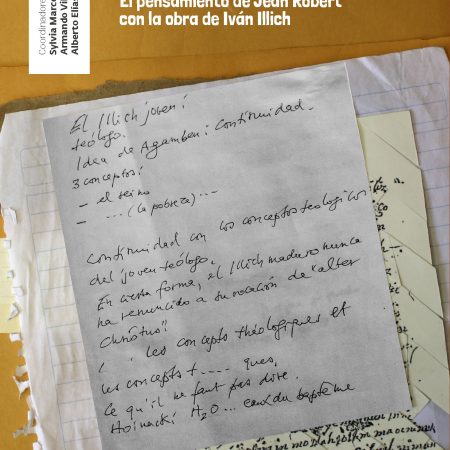 El pensamiento de Jean Robert
con la obra de Iván Illich
Coordinadores
Sylvia Marco
Armando Vi
Alberto Elías
El Illich joven:
teólogo.
Idea de Agamben: continuidad.
3 conceptos:
— el reino
— ... (la pobreza) ....
Continuidad con los conceptos teológicos
del joven teólogo.
En cierta forma, el Illich maduro nunca
ha renunciado a su vocación de "alter
Christus"
les concepts théologiques et
les concepts t..... ques,
Ce qu'il ne faut pas dire.
Hoinacki H2O ... eaux du baptême